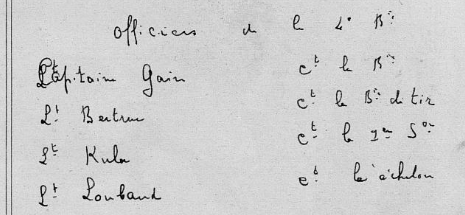 Officiers de la 4e Bie
Capitaine Gain ct la Bie
Lt Bertrou ct la Bie de tir
Lt Kuln ct la 1ère Son
Lt Loubaud ct le échelon